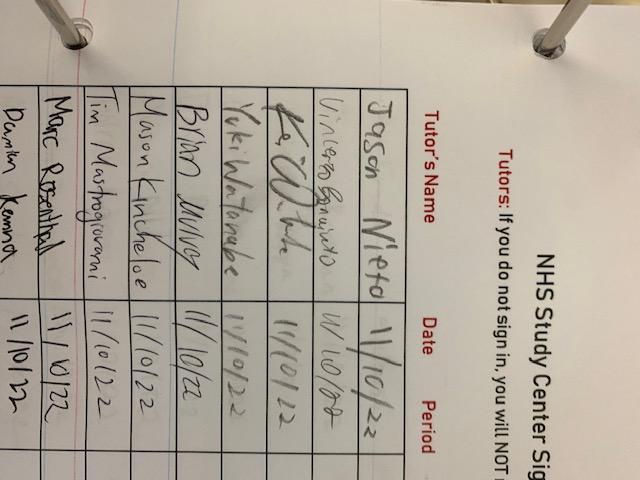 NHS Study Center Sig
Tutors: If you do not sign in, you will NOT
Tutor's Name Date Period
Jason Nieto 11/10/22
11/10/22
11/10/22
Yuki Watanabe 11/10/22
Brian 11/10/22
Mason Kincheloe 11/10/22
Tim Mastrogiovanni 11/10/22
Marc Rosenthal 11/10/22
Damian 11/10/22